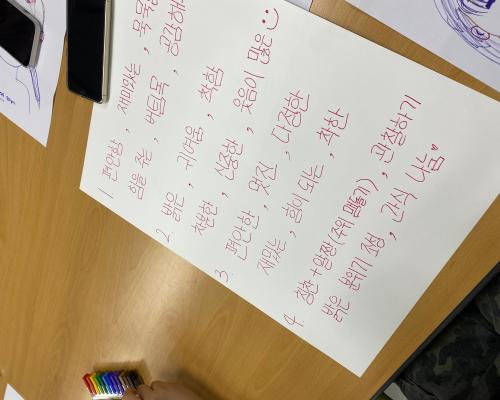 1. 편안함, 재미있는,
힘을 주는, 버팀목,
2. 밝은, 귀여움, 착함
차분한, 신중한, 웃음이 많은 :)
3. 편안한, 멋진, 다정한
재밌는, 힘이 되는, 착한
4. 칭찬 + 알짱 (주위 맴돎), 관찰, 기강잡기
밝은 분위기 조성, 시간 나눔